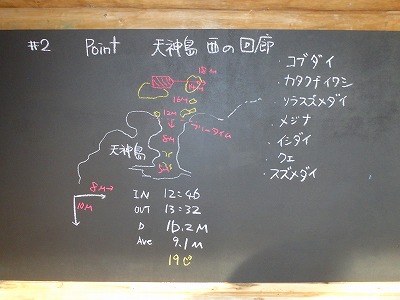 #2 Point 天神島 西の回廊
・コブダイ
・カタクチイワシ
・ソラスズメダイ
・メジナ
・イシダイ
・クエ
・スズメダイ
18M
14M
16M
12M
フリータイム
8M
天神島
5M
8M→
10M
IN 12:46
OUT 13:32
D 16.2M
Ave 9.1M
19℃